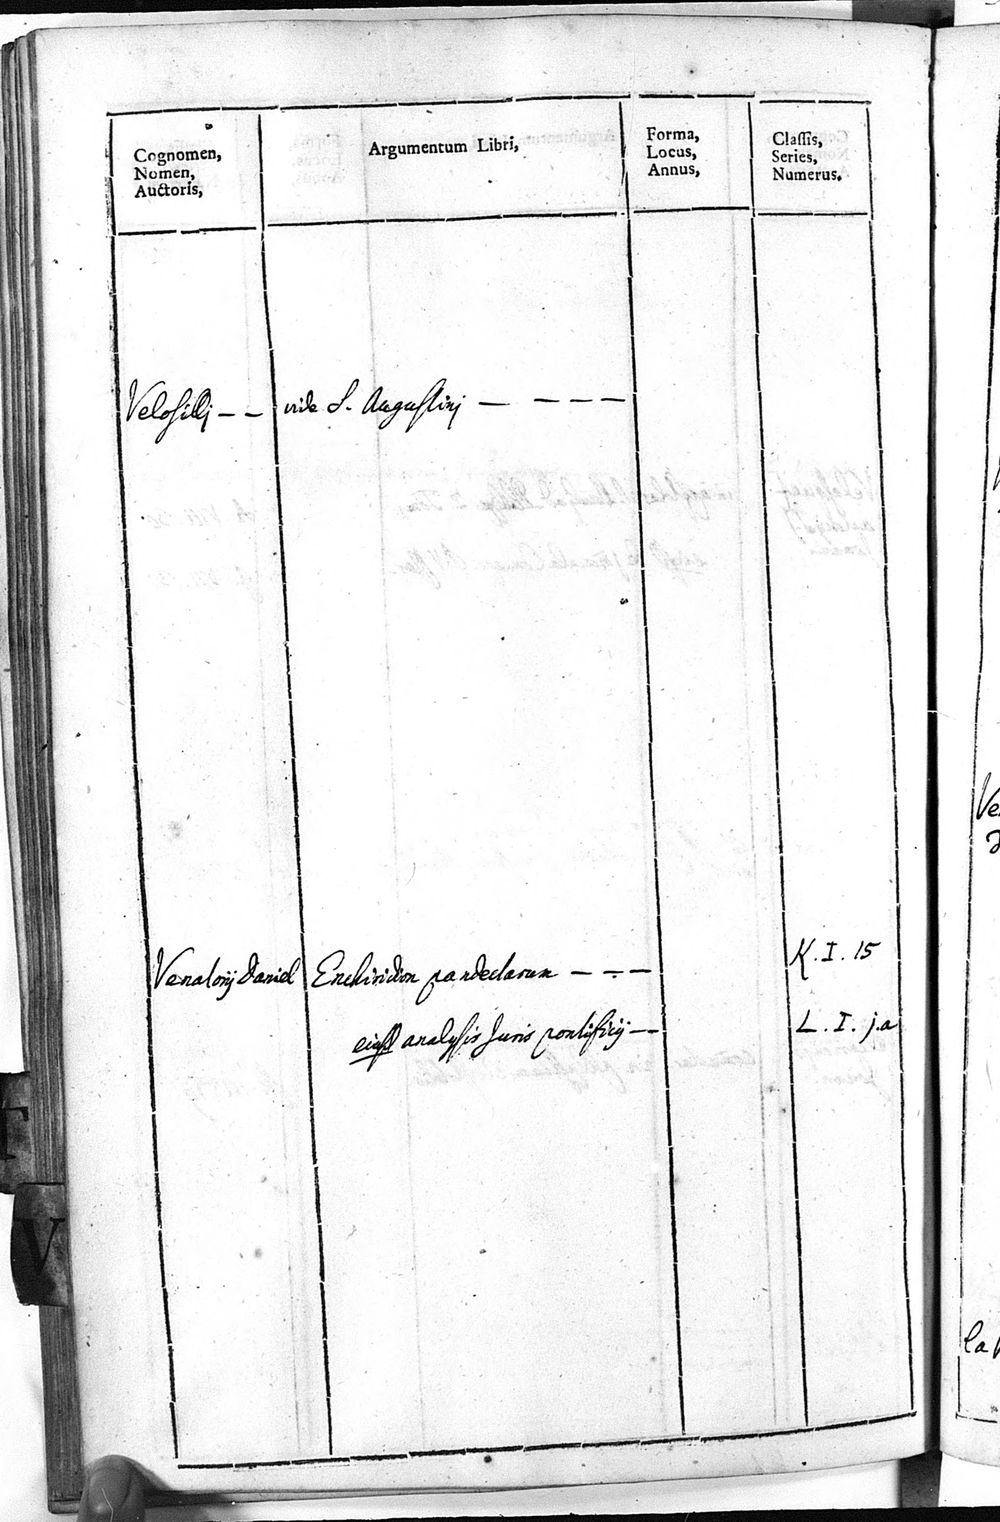 Cognomen,
Nomen,
Auctoris,
Argumentum Libri,
Forma,
Locus,
Annus,
Classis,
Series,
Numerus.
Velosillj – – vide S. Augustinj – – – –
Venatorij Daniel Enchiridion pandectarum – – – K. I. 15
eiusd analysis Juris pontificij – L. I. j.a
V